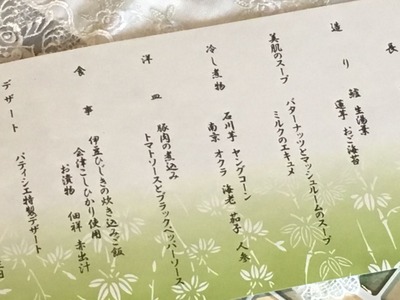 長
造り
鱧 生湯葉
蓮芋 おご海苔
美肌のスープ
バターナッツとマッシュルームのスープ
ミルクのエキュメ
冷し煮物
石川芋 ヤングコーン
南京 オクラ 海老 茄子 人参
洋皿
豚肉の煮込み
トマトソースとブラックペッパーソース
食事
伊豆ひじきの炊き込みご飯
会津こしひかり使用
お漬物 佃祥 赤出汁
デザート
パティシエ特製デザート